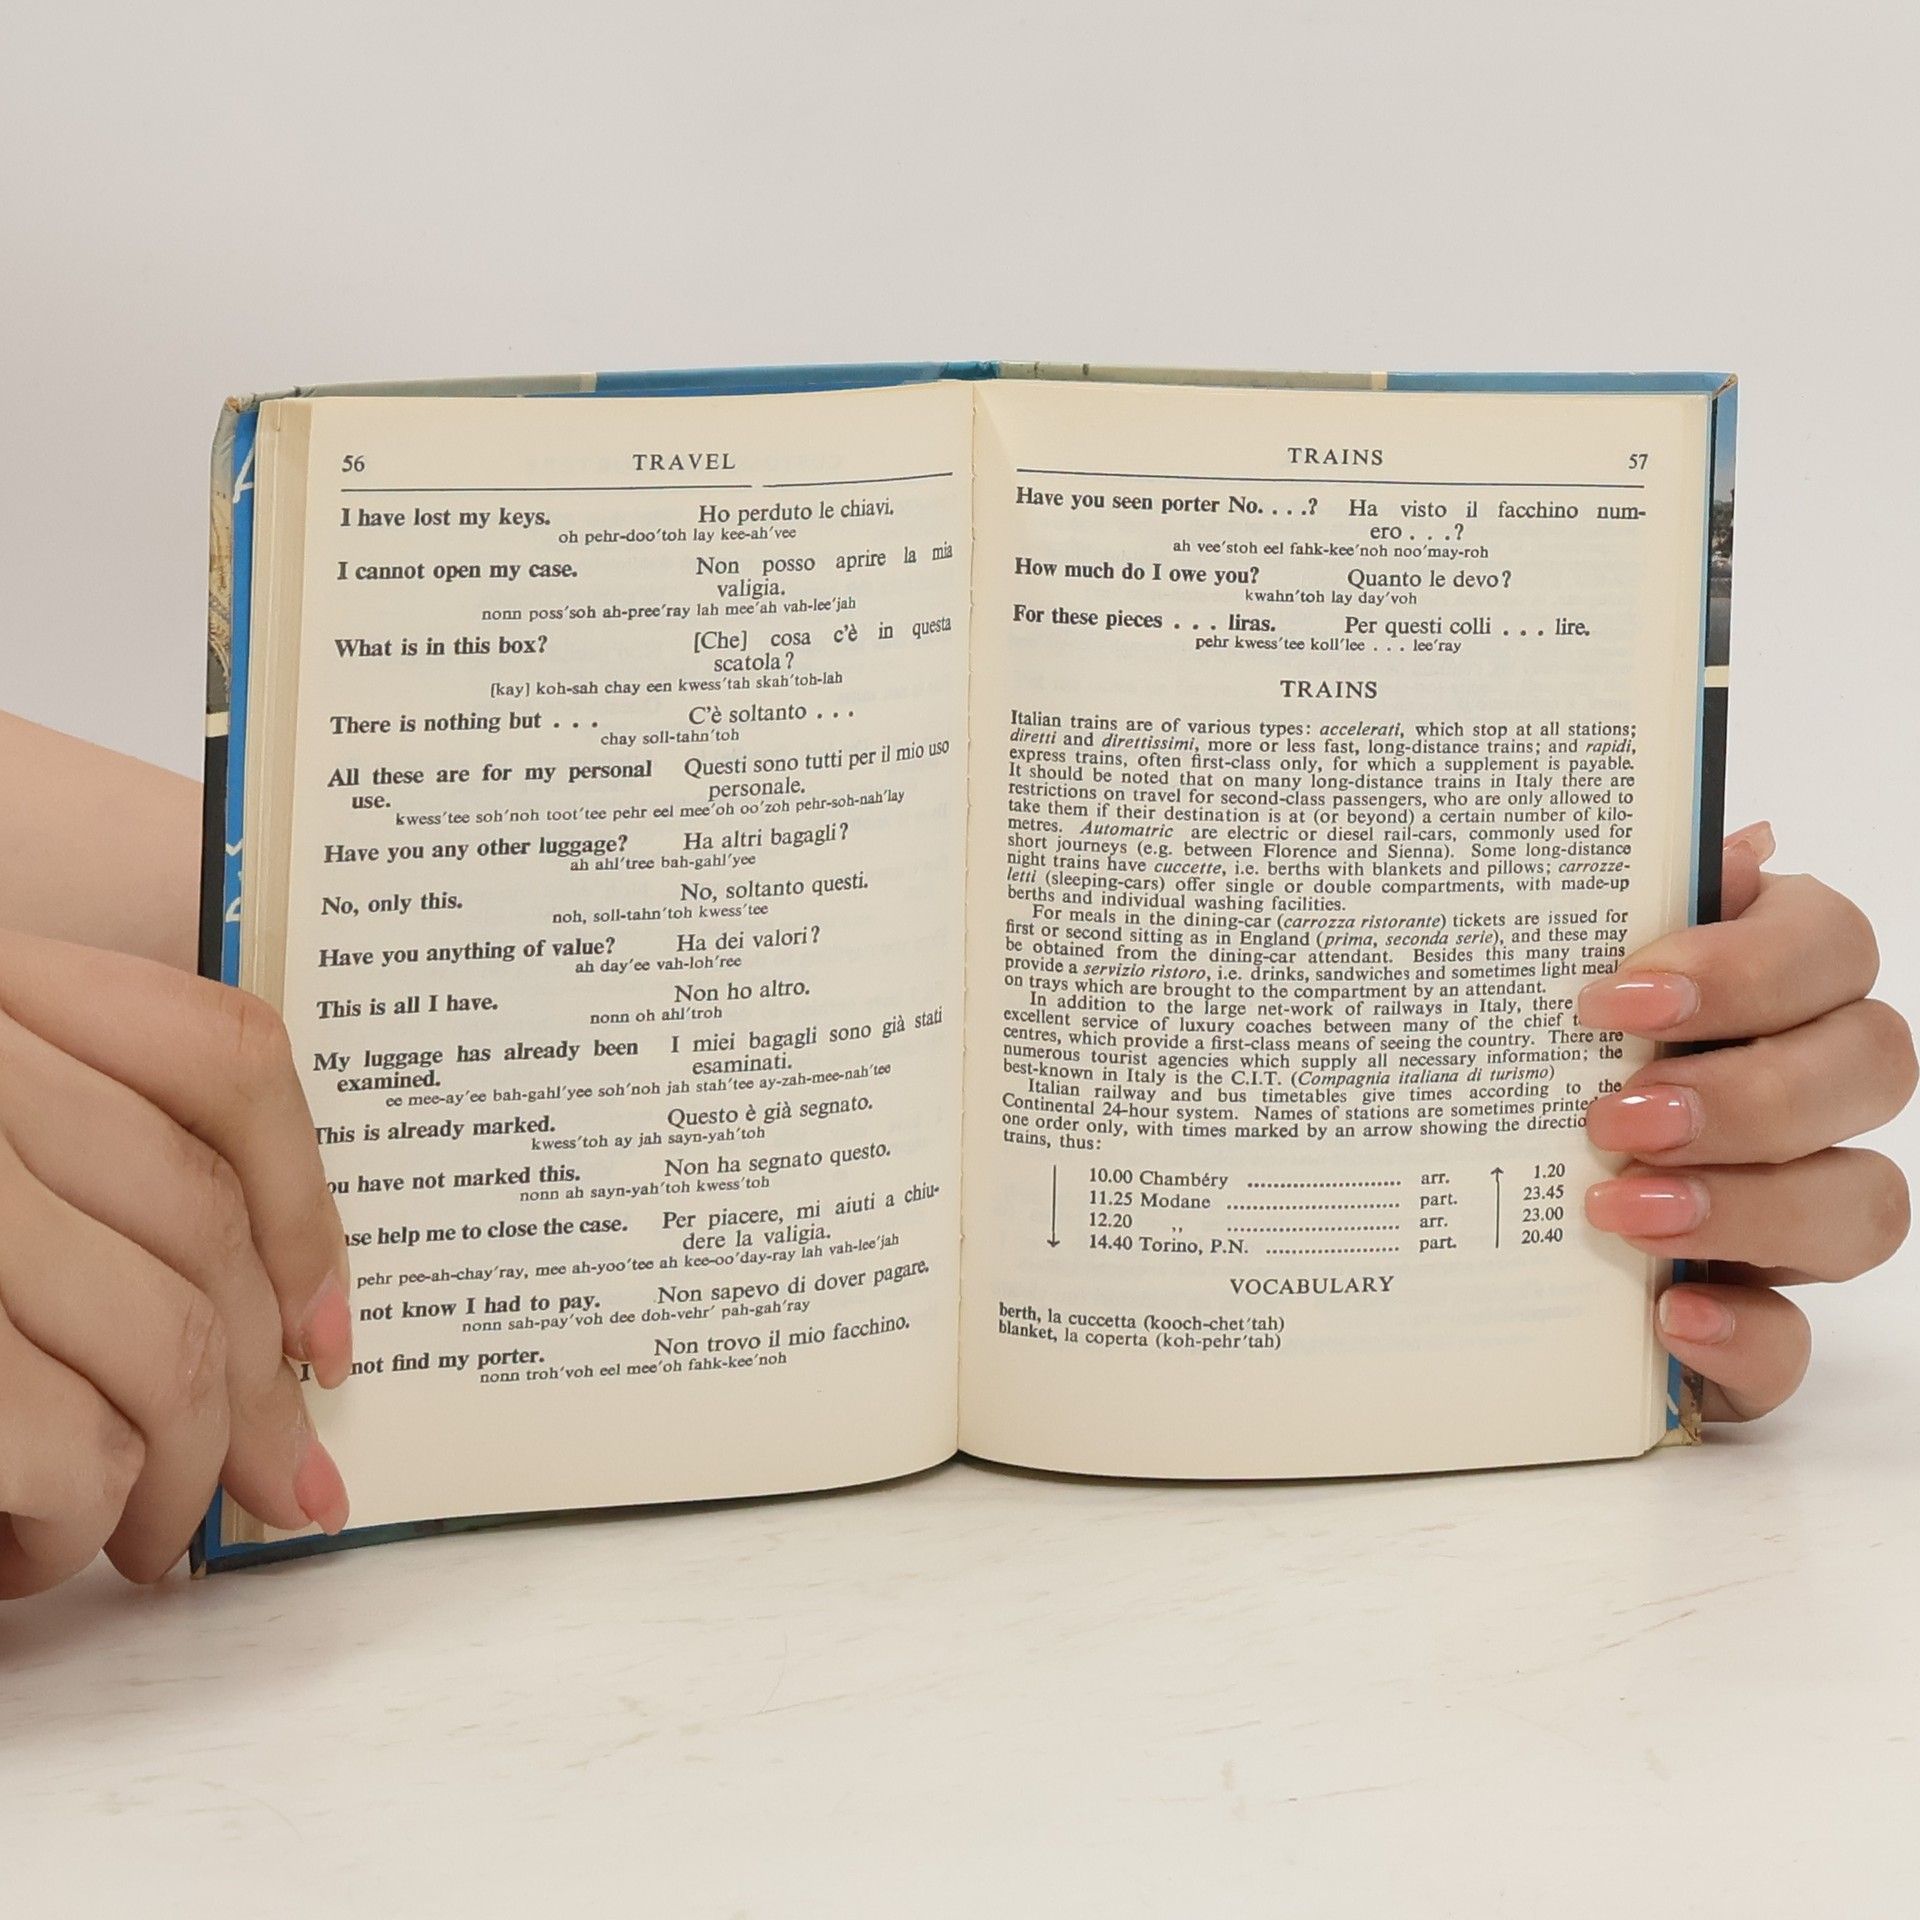 56 TRAVEL
I have lost my keys. Ho perduto le chiavi.
oh pehr-doo′toh lay kee-ah′vee
I cannot open my case. Non posso aprire la mia
valigia.
nonn poss′soh ah-pree′ray lah mee′ah vah-lee′jah
What is in this box? [Che] cosa c’è in questa
scatola?
[kay] koh-sah chay een kwess′tah skah′toh-lah
There is nothing but . . . C’è soltanto . . .
chay soll-tahn′toh
All these are for my personal Questi sono tutti per il mio uso
use. personale.
kwess′tee soh′noh toot′tee pehr eel mee′oh oo′zoh pehr-soh-nah′lay
Have you any other luggage? Ha altri bagagli?
ah ahl′tree bah-gahl′yee
No, only this. No, soltanto questi.
noh, soll-tahn′toh kwess′tee
Have you anything of value? Ha dei valori?
ah day′ee vah-loh′ree
This is all I have. Non ho altro.
nonn oh ahl′troh
My luggage has already been I miei bagagli sono già stati
examined. esaminati.
ee mee-ay′ee bah-gahl′yee soh′noh jah stah′tee ay-zah-mee-nah′tee
This is already marked. Questo è già segnato.
kwess′toh ay jah sayn-yah′toh
ou have not marked this. Non ha segnato questo.
nonn ah sayn-yah′toh kwess′toh
se help me to close the case. Per piacere, mi aiuti a chiu-
dere la valigia.
pehr pee-ah-chay′ray, mee ah-yoo′tee ah kee-oo′day-ray lah vah-lee′jah
not know I had to pay. Non sapevo di dover pagare.
nonn sah-pay′voh dee doh-vehr′ pah-gah′ray
I not find my porter. Non trovo il mio facchino.
nonn troh′voh eel mee′oh fahk-kee′noh
TRAINS 57
Have you seen porter No. . . .? Ha visto il facchino num-
ero . . .?
ah vee′stoh eel fahk-kee′noh noo′may-roh
How much do I owe you? Quanto le devo?
kwahn′toh lay day′voh
For these pieces . . . liras. Per questi colli . . . lire.
pehr kwess′tee koll′lee . . . lee′ray
TRAINS
Italian trains are of various types: accelerati, which stop at all stations;
diretti and direttissimi, more or less fast, long-distance trains; and rapidi,
express trains, often first-class only, for which a supplement is payable.
It should be noted that on many long-distance trains in Italy there are
restrictions on travel for second-class passengers, who are only allowed to
take them if their destination is at (or beyond) a certain number of kilo-
metres. Automatric are electric or diesel rail-cars, commonly used for
short journeys (e.g. between Florence and Sienna). Some long-distance
night trains have cuccette, i.e. berths with blankets and pillows; carrozze-
letti (sleeping-cars) offer single or double compartments, with made-up
berths and individual washing facilities.
For meals in the dining-car (carrozza ristorante) tickets are issued for
first or second sitting as in England (prima, seconda serie), and these may
be obtained from the dining-car attendant. Besides this many trains
provide a servizio ristoro, i.e. drinks, sandwiches and sometimes light meal
on trays which are brought to the compartment by an attendant.
In addition to the large net-work of railways in Italy, there
excellent service of luxury coaches between many of the chief t
centres, which provide a first-class means of seeing the country. There are
numerous tourist agencies which supply all necessary information; the
best-known in Italy is the C.I.T. (Compagnia italiana di turismo)
Italian railway and bus timetables give times according to the
Continental 24-hour system. Names of stations are sometimes printe
one order only, with times marked by an arrow showing the directio
trains, thus:
10.00 Chambéry .......................... arr. 1.20
11.25 Modane ............................. part. 23.45
12.20 ,, ............................. arr. 23.00
14.40 Torino, P.N. ...................... part. 20.40
VOCABULARY
berth, la cuccetta (kooch-chet′tah)
blanket, la coperta (koh-pehr′tah)